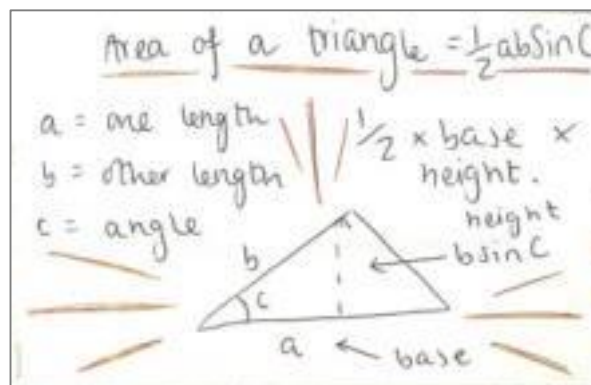 Area of a triangle = 1/2 abSinC
a = one length
b = other length
c = angle
1/2 × base ×
height.
height
bsinC
b
c
a
base